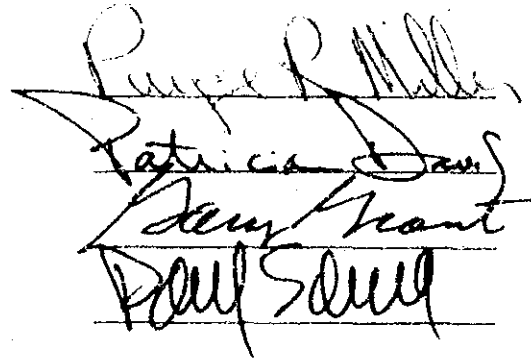 P. Miller
Patricia Davis
Gary Grant
Paul